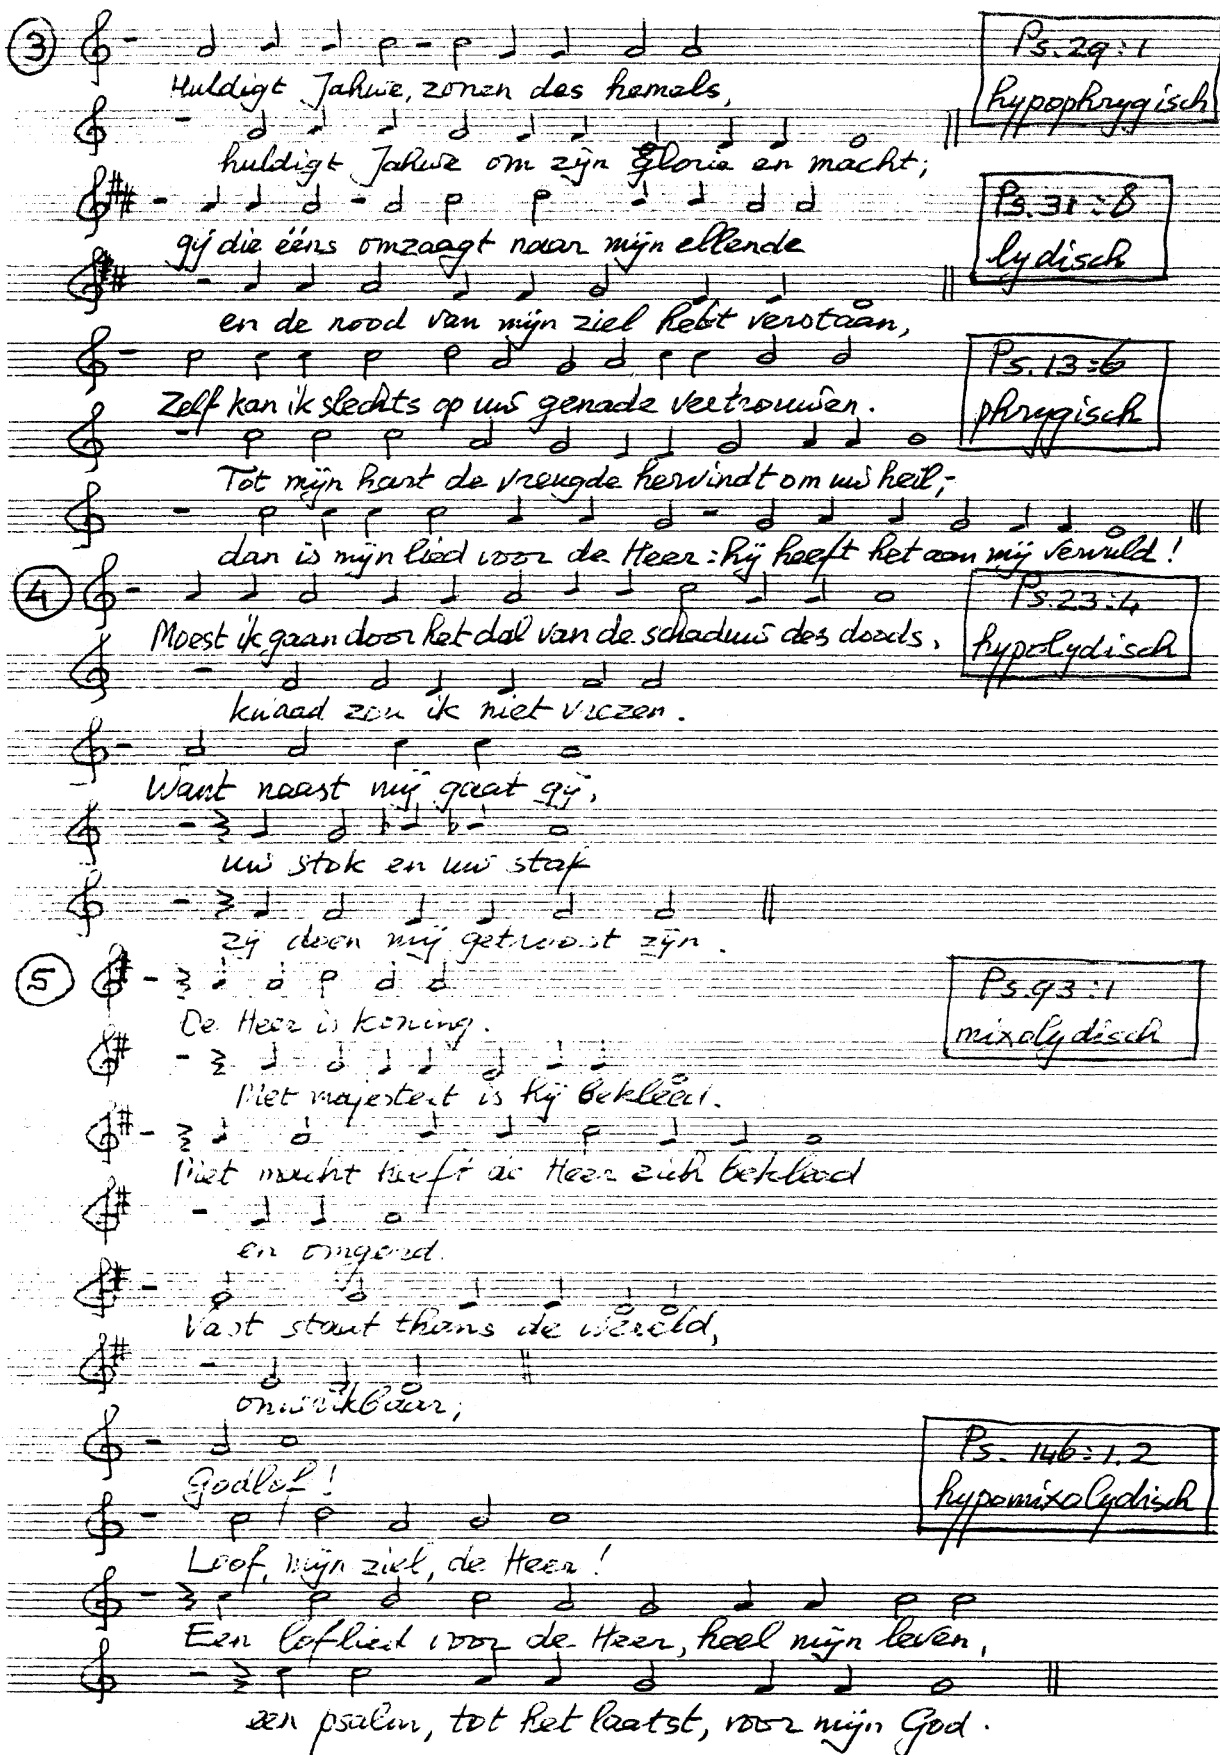 3
Ps. 29:1
hypophrygisch
Huldigt Jahwe, zonen des hemels,
huldigt Jahwe om zijn glorie en macht;
Ps. 31:8
lydisch
gij die ééns omzaagt naar mijn ellende
en de nood van mijn ziel hebt verstaan,
Ps. 13:6
phrygisch
Zelf kan ik slechts op uw genade vertrouwen.
Tot mijn hart de vreugde hervindt om uw heil;
dan is mijn lied voor de Heer: hij heeft het aan mij vervuld!
4
Ps. 23:4
hypolydisch
Moest ik gaan door het dal van de schaduw des doods,
kwaad zou ik niet vrezen.
Want naast mij gaat gij,
uw stok en uw staf
zij doen mij getroost zijn.
5
Ps. 93:1
mixolydisch
De Heer is koning.
Met majesteit is hij bekleed.
Met macht heeft de Heer zich bekleed
en omgord.
Vast staat thans de wereld,
onwrikbaar;
Ps. 146:1.2
hypomixolydisch
Godlof!
Loof, mijn ziel, de Heer!
Een loflied voor de Heer, heel mijn leven,
een psalm, tot het laatst, voor mijn God.